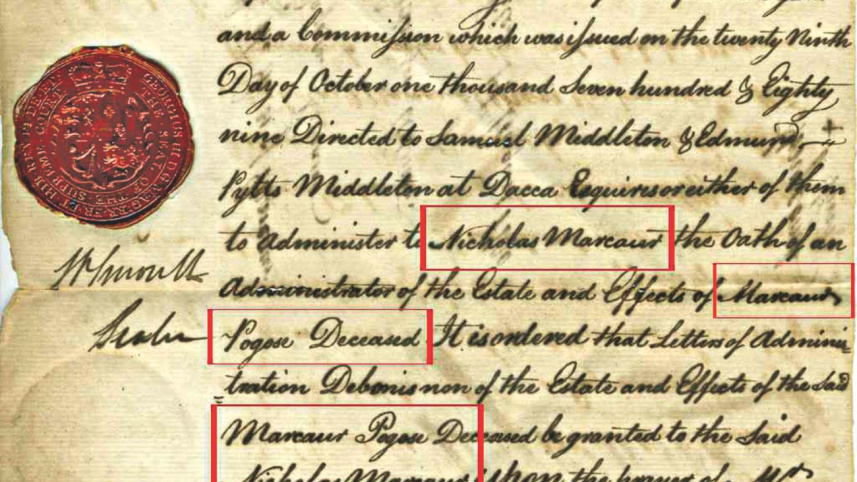 and a Commission which was issued on the twenty Ninth
Day of October one thousand Seven hundred & Eighty
nine Directed to Samuel Middleton & Edmund
Pytts Middleton at Dacca Esquires or either of them
to administer to Nicholas Marcaur the Oath of an
Administrator of the Estate and Effects of Marcaur
Pogose Deceased It is ordered that Letters of Adminis=
=tration Debonis non of the Estate and Effects of the Said
Marcaur Pogose Deceased be granted to the Said
Nicholas Marcaur upon the prayer of Mr
GEORGIUS III
THE SEAL OF THE SUPREME COURT
Sealer